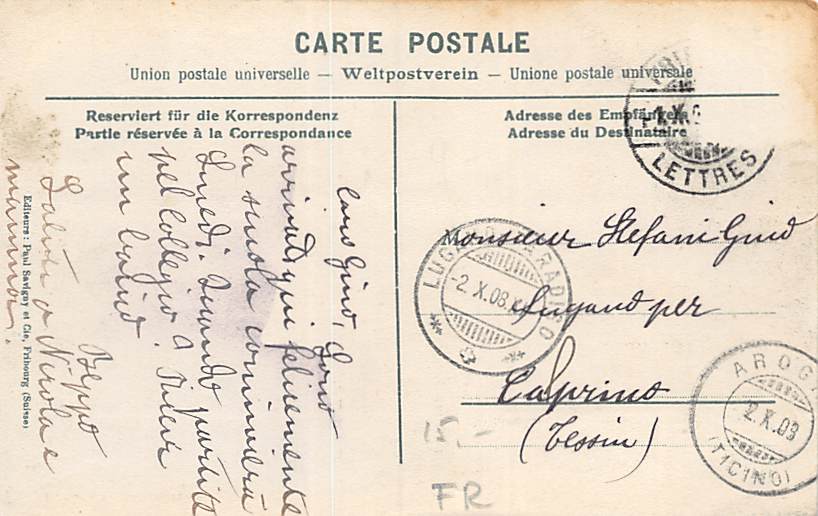 CARTE POSTALE
Union postale universelle — Weltpostverein — Unione postale universale
Reserviert für die Korrespondenz
Partie réservée à la Correspondance
Adresse des Empfängers
Adresse du Destinataire
caro Gino, Sono
arrivato qui felicemente
la scuola comincierà
Lunedi. Quando partite
pel Collegio?
un bacino
Beppo
Saluti a Nicola e
mamma.
Editeurs: Paul Savigny et Cie, Fribourg (Suisse)
LETTRES
Monsieur Stefani Gino
Lugano per
Caprino
(Tessin)
LUGANO PARADISO
2.X.08
AROGN
2.X.08
(TICINO)
15.-
FR